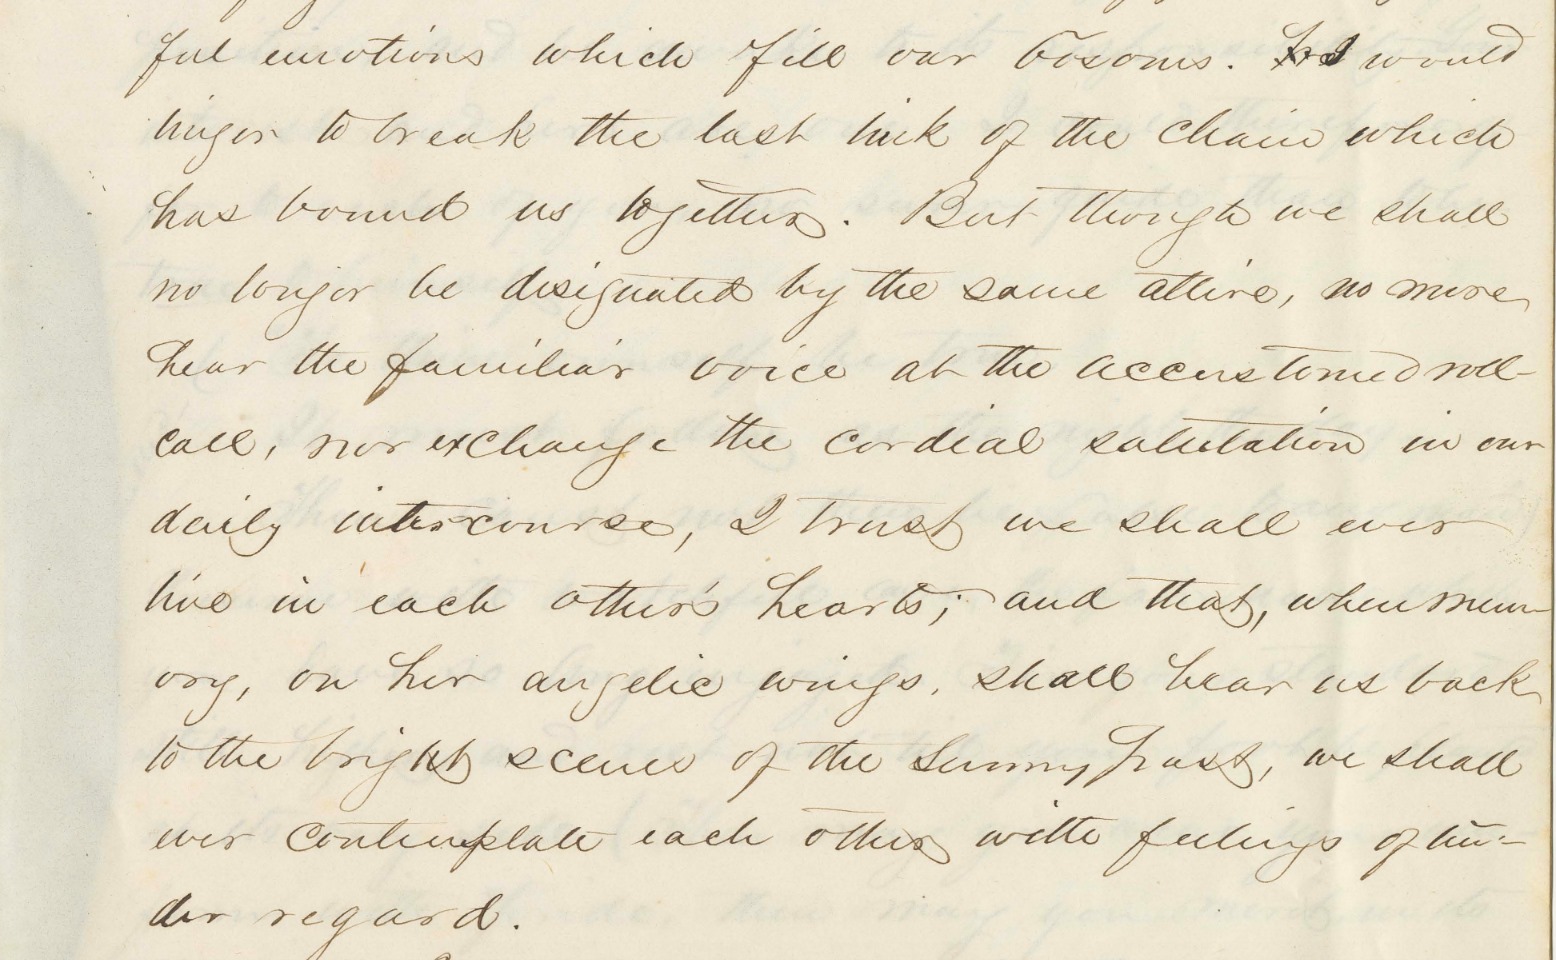 ful emotions which fill our bosoms. I would
linger to break the last link of the chain which
has bound us together. But though we shall
no longer be designated by the same attire, no more
hear the familiar voice at the accustomed roll-
call, nor exchange the cordial salutation in our
daily intercourse, I trust we shall ever
live in each other's hearts; and that, when mem-
ory, on her angelic wings, shall bear us back
to the bright scenes of the sunny past, we shall
ever contemplate each other with feelings of ten-
der regard.